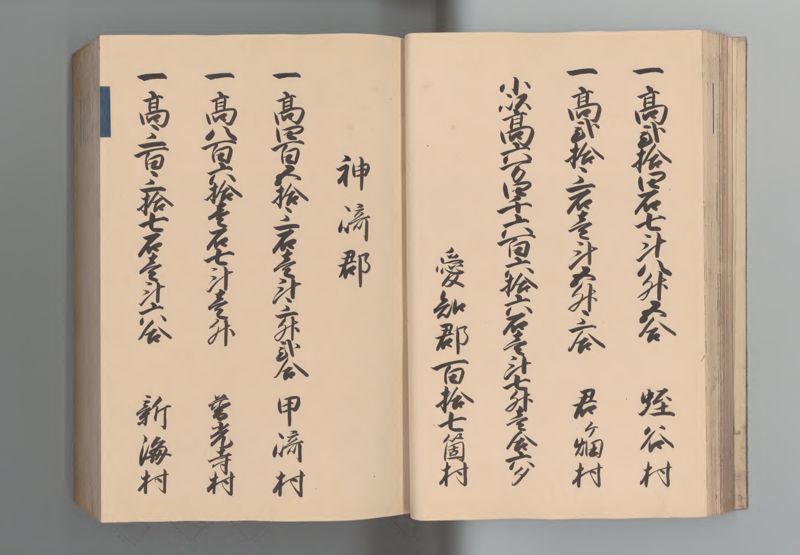 一高弐拾四石七斗八升五合 蛭谷村
一高弐拾三石壱斗五升三合 君ヶ畑村
小以高六万四千六百六拾六石壱斗七升壱合六夕
愛知郡百拾七箇村
神崎郡
一高四百五拾三石壱斗三升弐合 甲崎村
一高八百六拾壱石七斗壱升 普光寺村
一高三百三拾七石壱斗六合 新海村